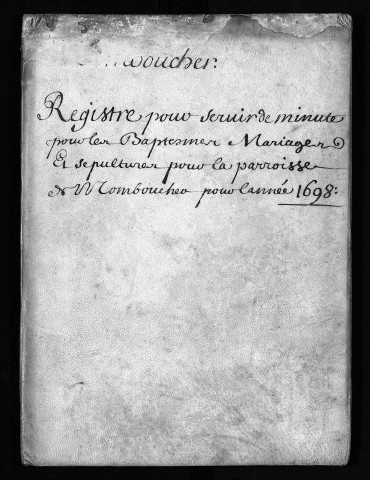 woucher:
Registre pour seruir de minute
pour les Baptesmes Mariages
Et sepultures pour la parroisse
de Momboucher pour lannée 1698: